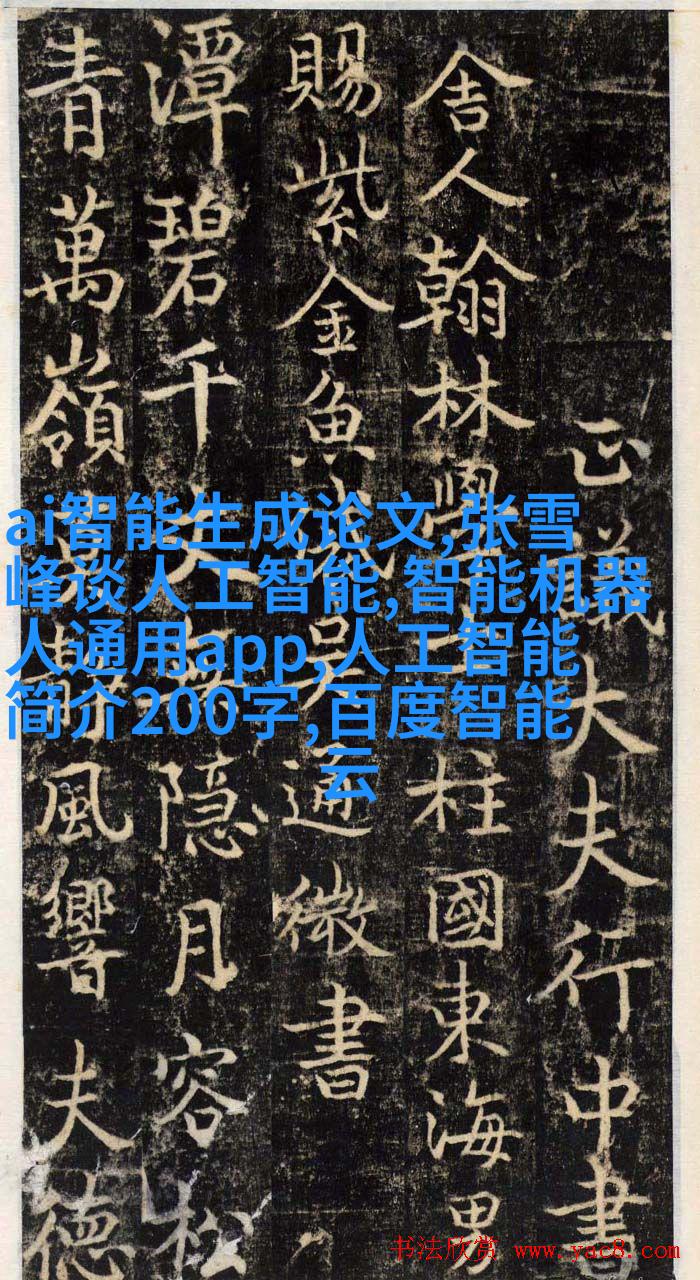 正議大夫行中書
舍人翰林學柱國東海男
賜紫金魚袋吳通微書
潭碧千丈隱月容松
青萬嶺風響夫德
ai智能生成论文,张雪
峰谈人工智能,智能机器
人通用app,人工智能
简介200字,百度智能
云
书法欣赏 www.yac8.com